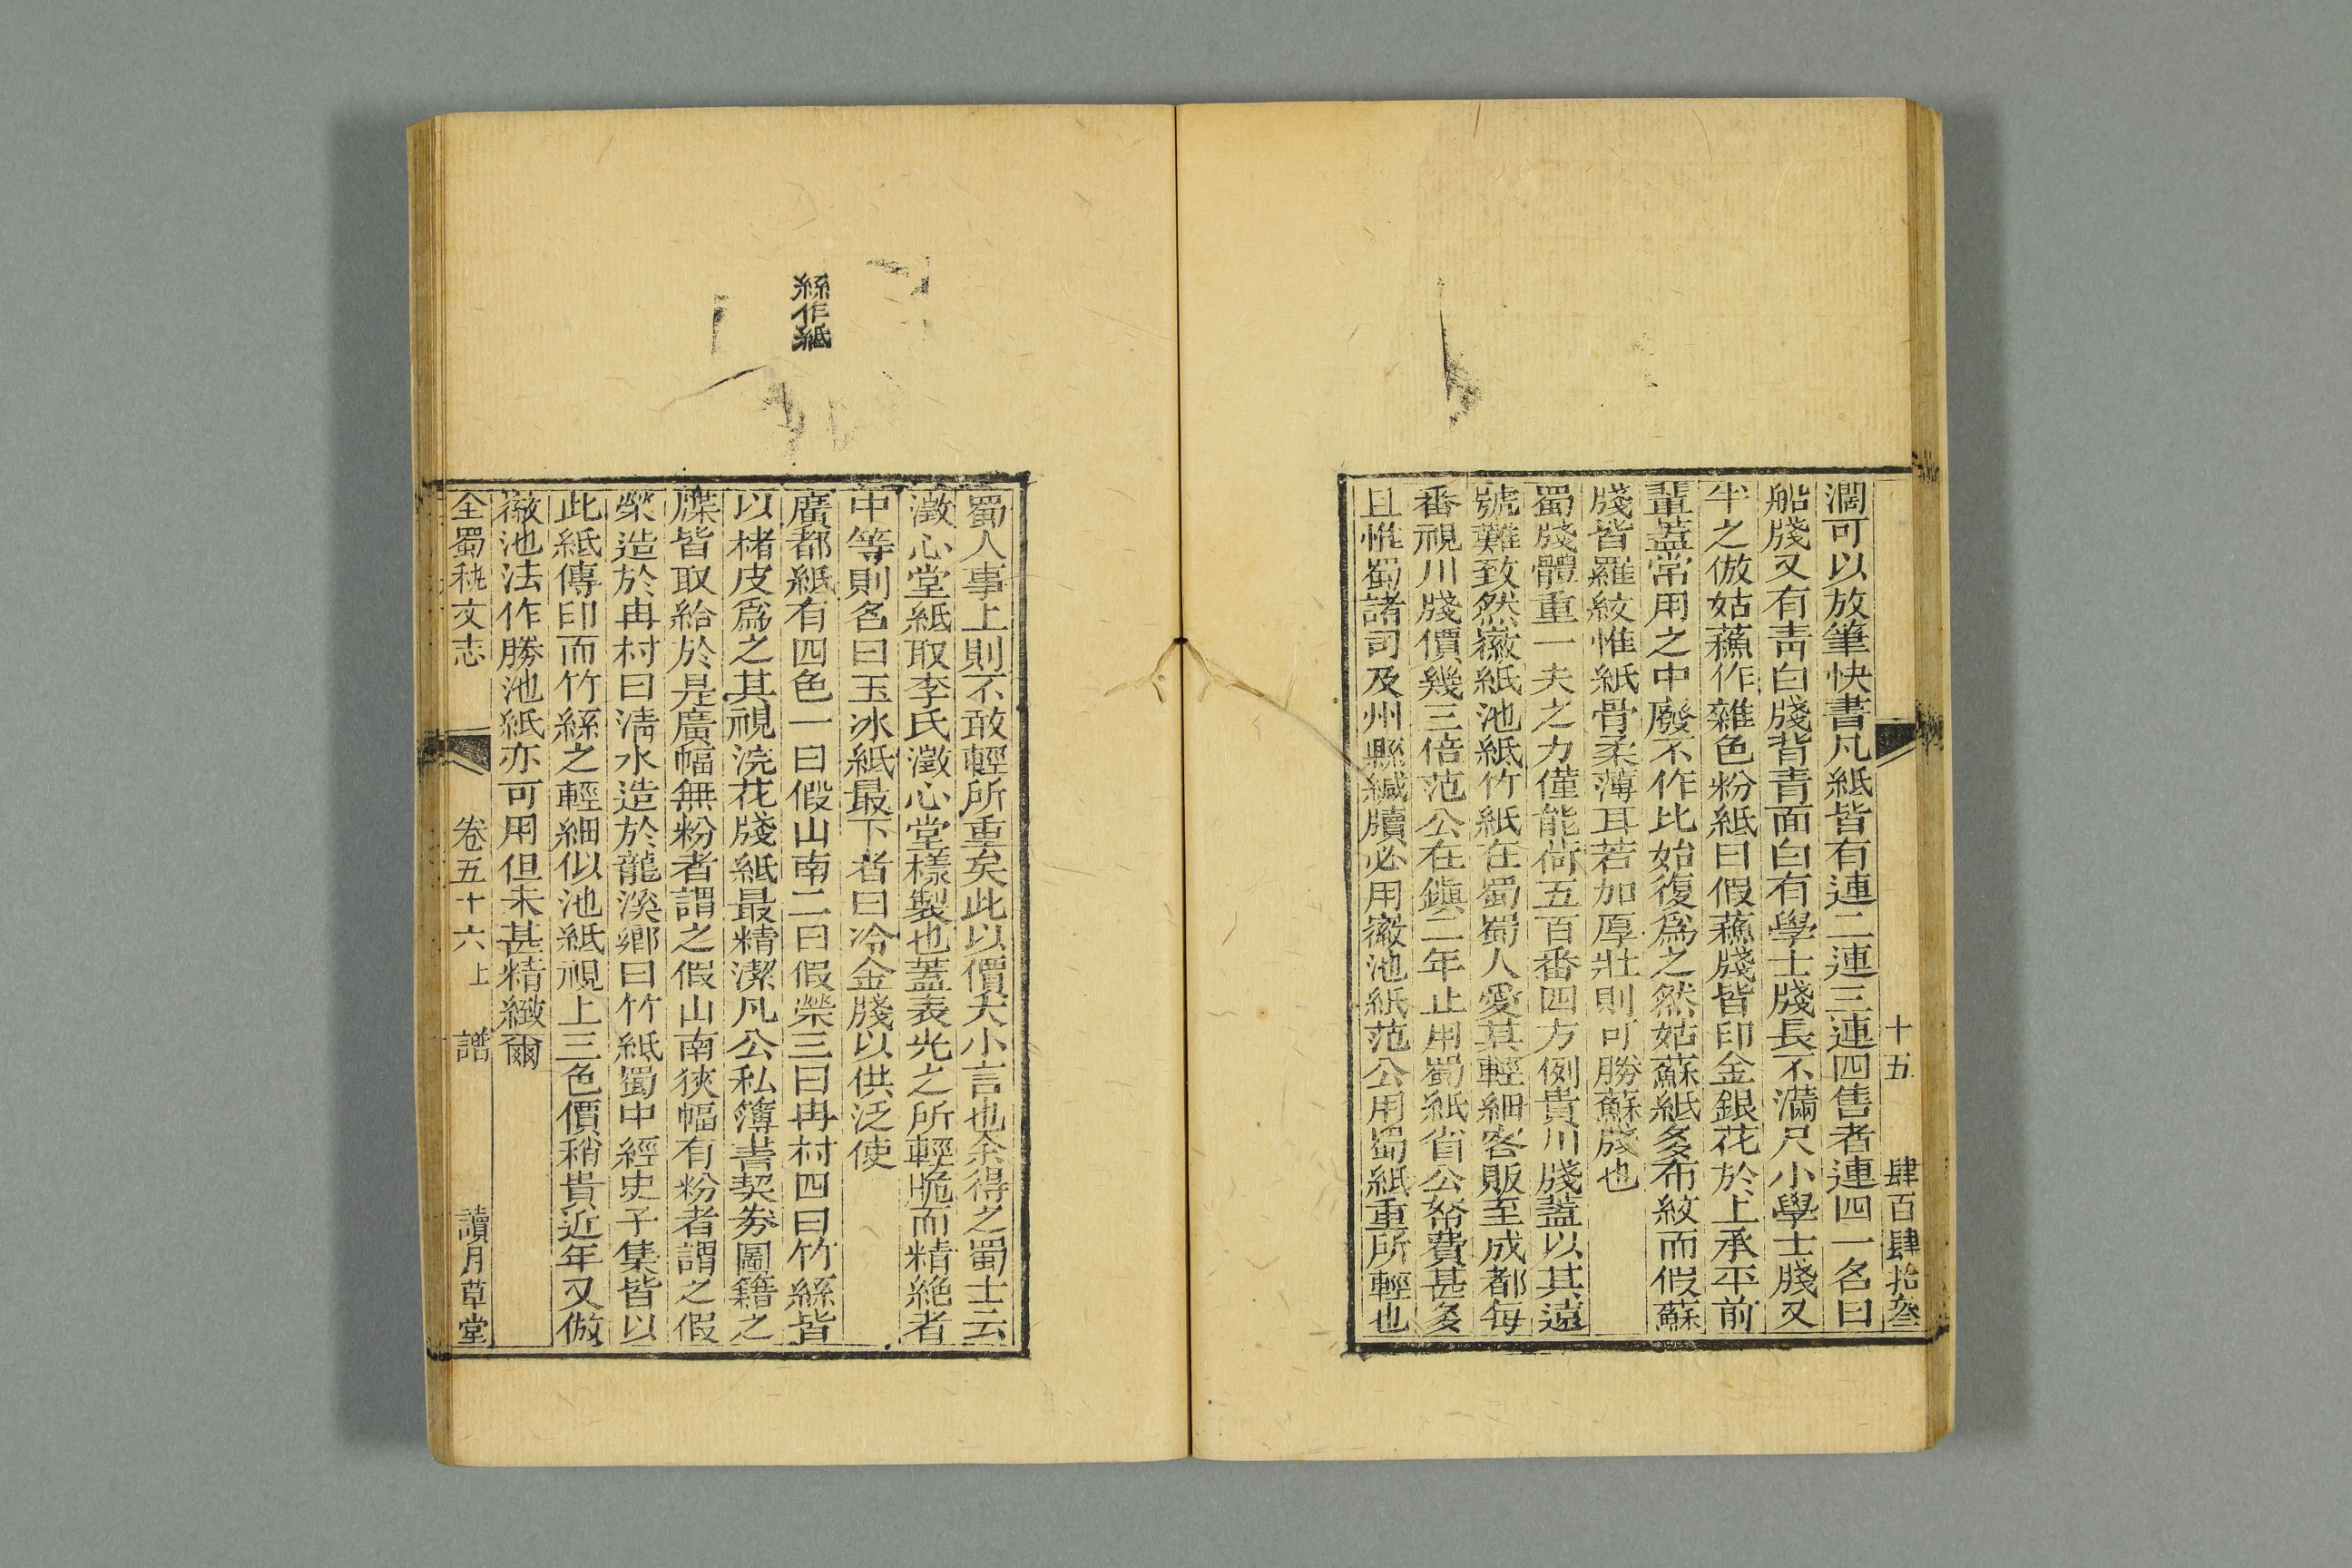 十五 肆百肆拾叄
濶可以放筆快書凡紙皆有連二連三連四售者連四一名曰
船牋又有青白牋背青面白有學士牋長不滿尺小學士牋又
半之倣姑蘓作雜色粉紙曰假蘓牋皆印金銀花於上承平前
輩蓋常用之中廢不作比始復爲之然姑蘇紙多布紋而假蘇
牋皆羅紋惟紙骨柔薄耳若加厚壯則可勝蘇牋也
蜀牋體重一夫之力僅能荷五百番四方例貴川牋蓋以其遠
號難致然徽紙池紙竹紙在蜀蜀人愛其輕細客販至成都每
番視川牋價幾三倍范公在鎮二年止用蜀紙省公帑費甚多
且惟蜀諸司及州縣緘牘必用徽池紙范公用蜀紙重所輕也
絲作紙
蜀人事上則不敢輕所重矣此以價大小言也余得之蜀士云
澂心堂紙取李氏澂心堂樣製也蓋表光之所輕脆而精絶者
中等則名曰玉冰紙最下者曰冷金牋以供泛使
廣都紙有四色一曰假山南二曰假榮三曰冉村四曰竹絲皆
以楮皮爲之其視浣花牋紙最精潔凡公私簿書契劵圖籍之
牒皆取給於是廣幅無粉者謂之假山南狹幅有粉者謂之假
榮造於冉村曰清水造於龍溪鄉曰竹紙蜀中經史子集皆以
此紙傳印而竹絲之輕細似池紙視上三色價稍貴近年又倣
徽池法作勝池紙亦可用但未甚精緻爾
全蜀秇文志 卷五十六上 譜 讀月草堂